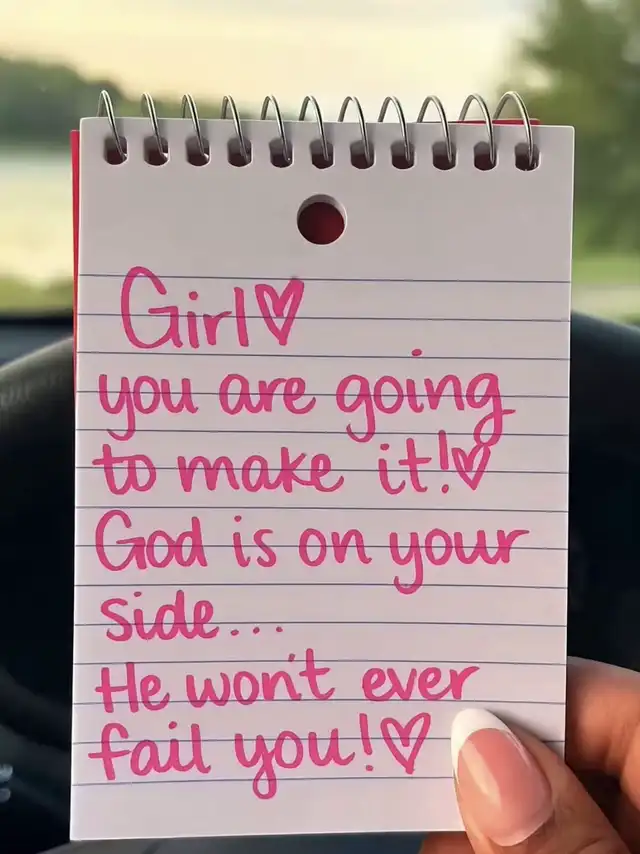 Girl♡
you are going
to make it!♡
God is on your
side...
He won't ever
fail you!♡